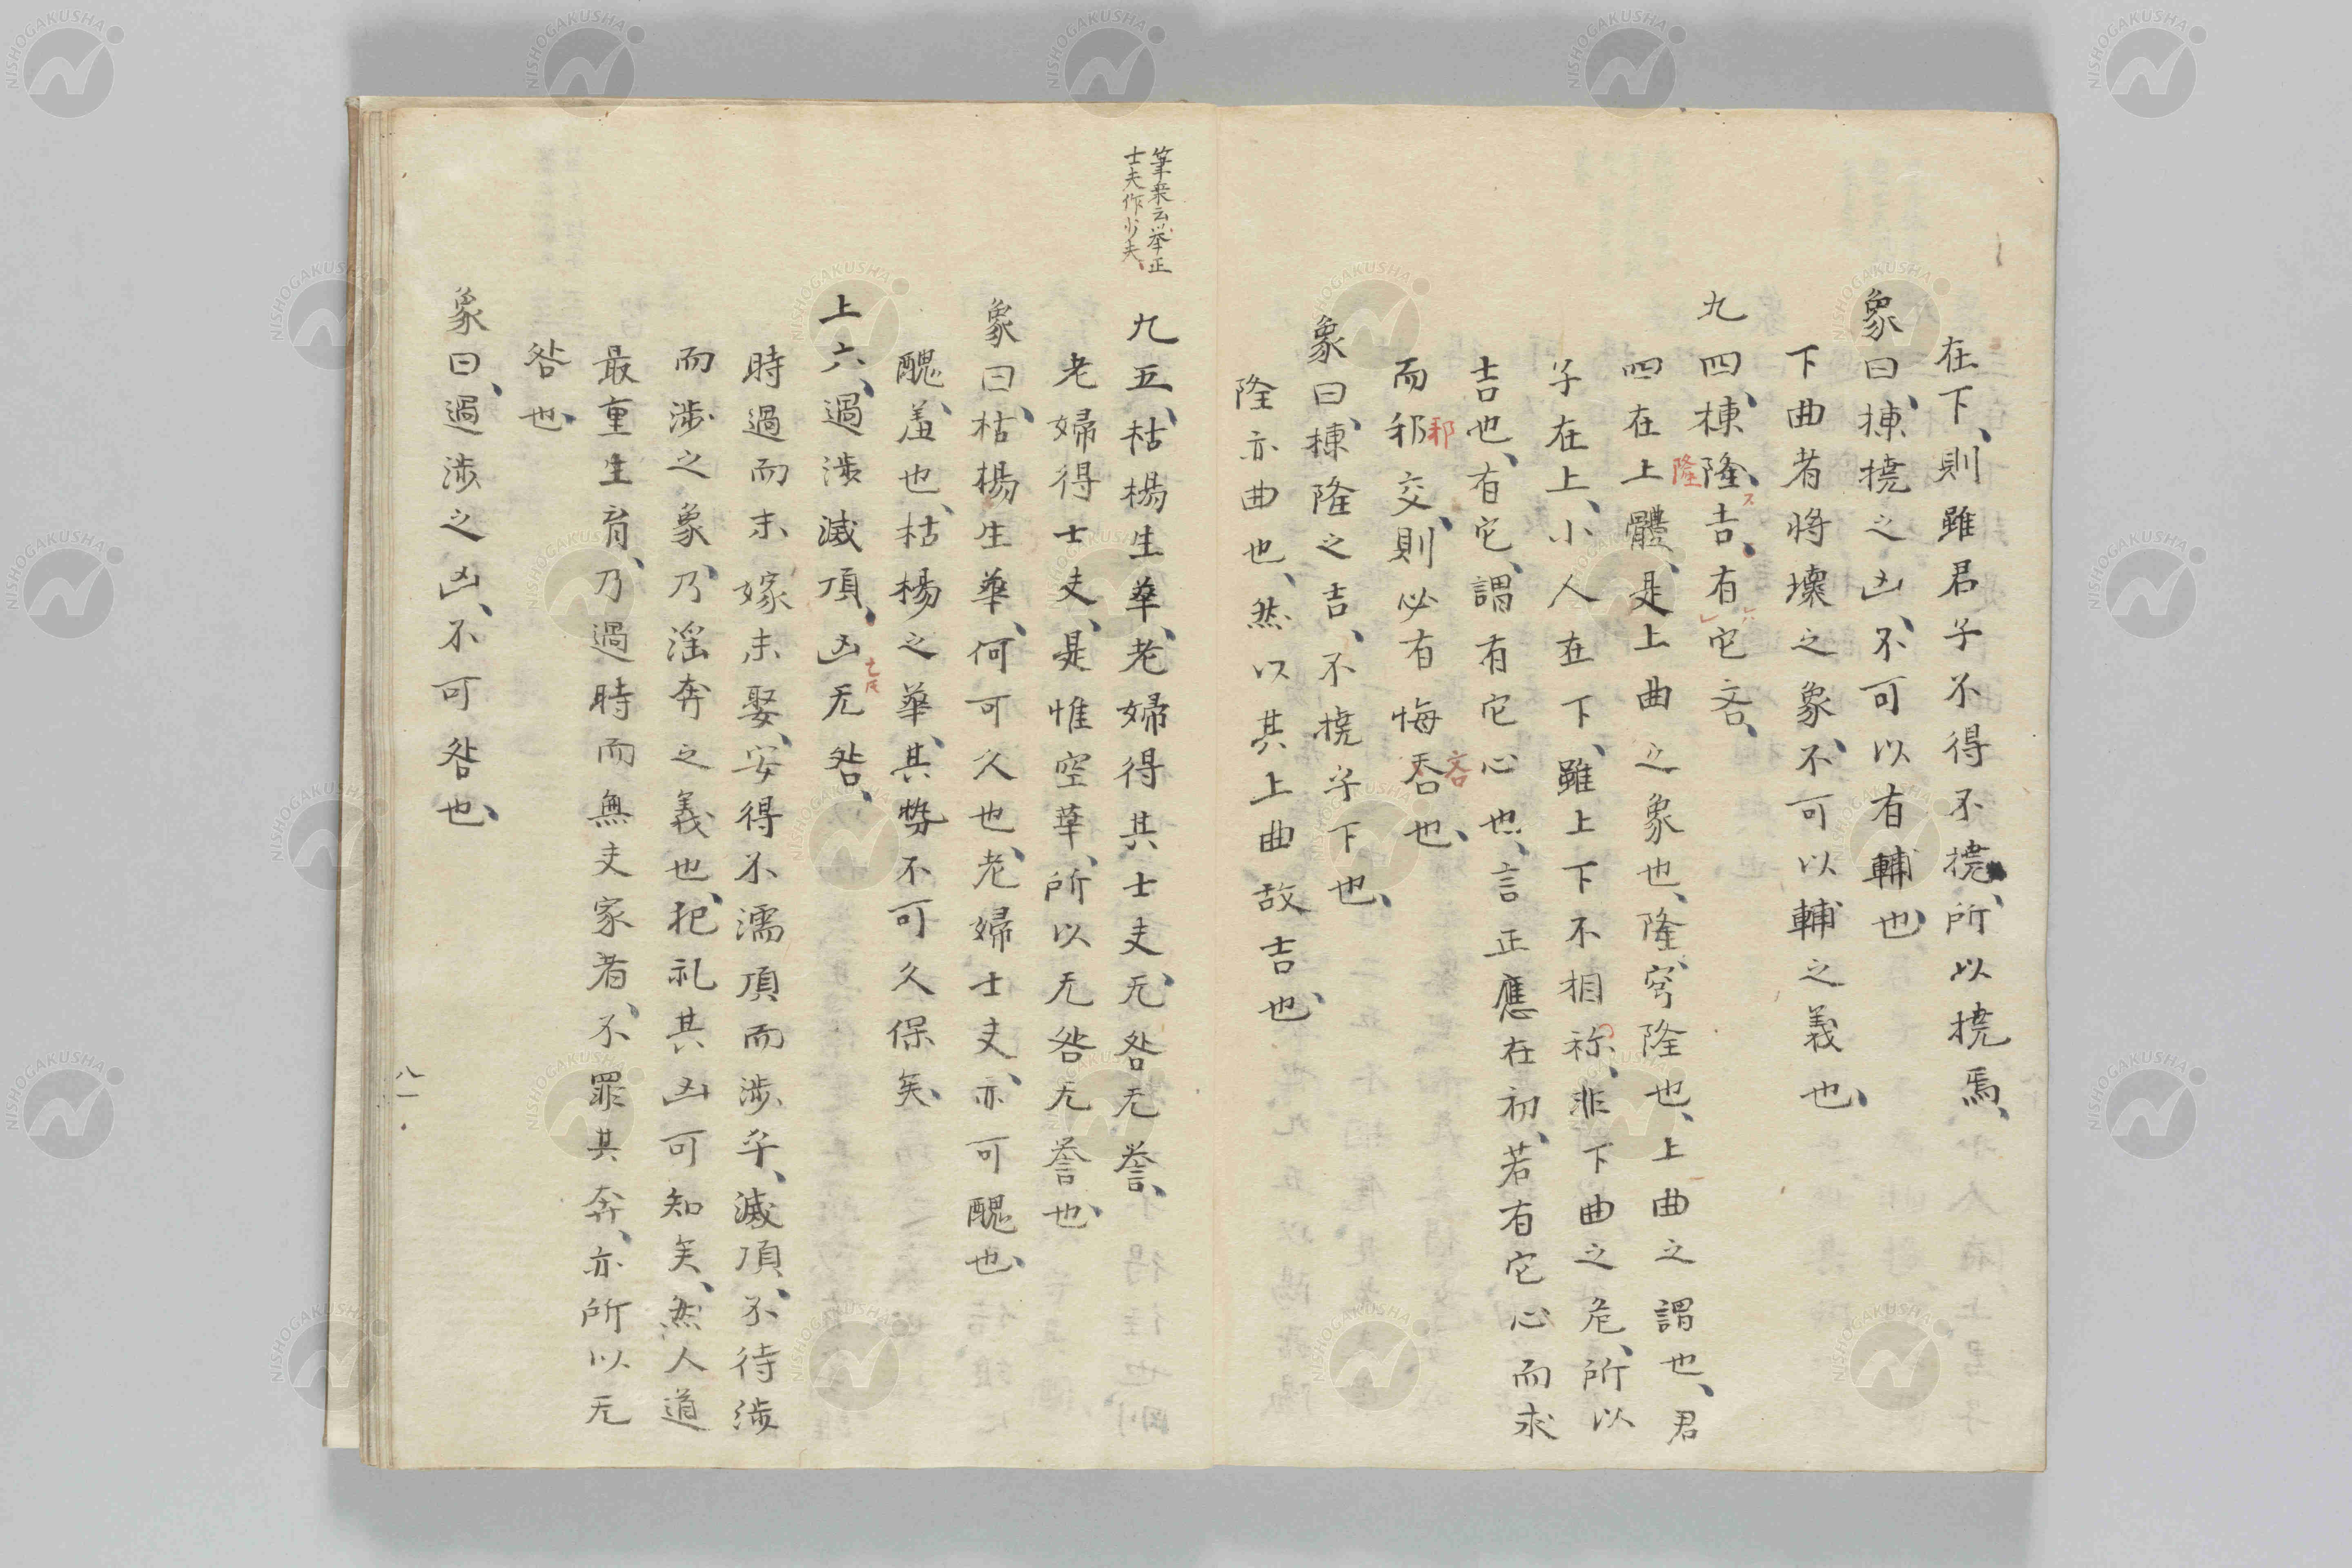 在下、則雖君子不得不撓、所以撓焉、
象曰、棟撓之凶、不可以有輔也、
下曲者將壞之象、不可以輔之義也、
九四、棟隆、吉、有它吝、
隆
四在上體、是上曲之象也、隆、穹隆也、上曲之謂也、君
子在上、小人在下、雖上下不相称、非下曲之危、所以
吉也、有它、謂有它心也、言正應在初、若有它心而求
而邪交、則必有悔吝也、
邪
吝
象曰、棟隆之吉、不撓乎下也、
隆亦曲也、然以其上曲故吉也、
筆来云挙正
士夫作少夫
九五、枯楊生華、老婦得其士夫、无咎无誉、
老婦得士夫、是惟空華、所以无咎无誉也、
象曰、枯楊生華、何可久也、老婦士夫、亦可醜也、
醜、羞也、枯楊之華、其勢不可久保矣、
上六、過涉滅頂、凶、无咎、
時過而未嫁未娶、安得不濡頂而涉乎、滅頂、不待涉
而涉之象、乃淫奔之義也、犯礼其凶可知矣、然人道
最重生育、乃過時而無夫家者、不罪其奔、亦所以无
咎也、
象曰、過涉之凶、不可咎也、
八一
NISHOGAKUSHA